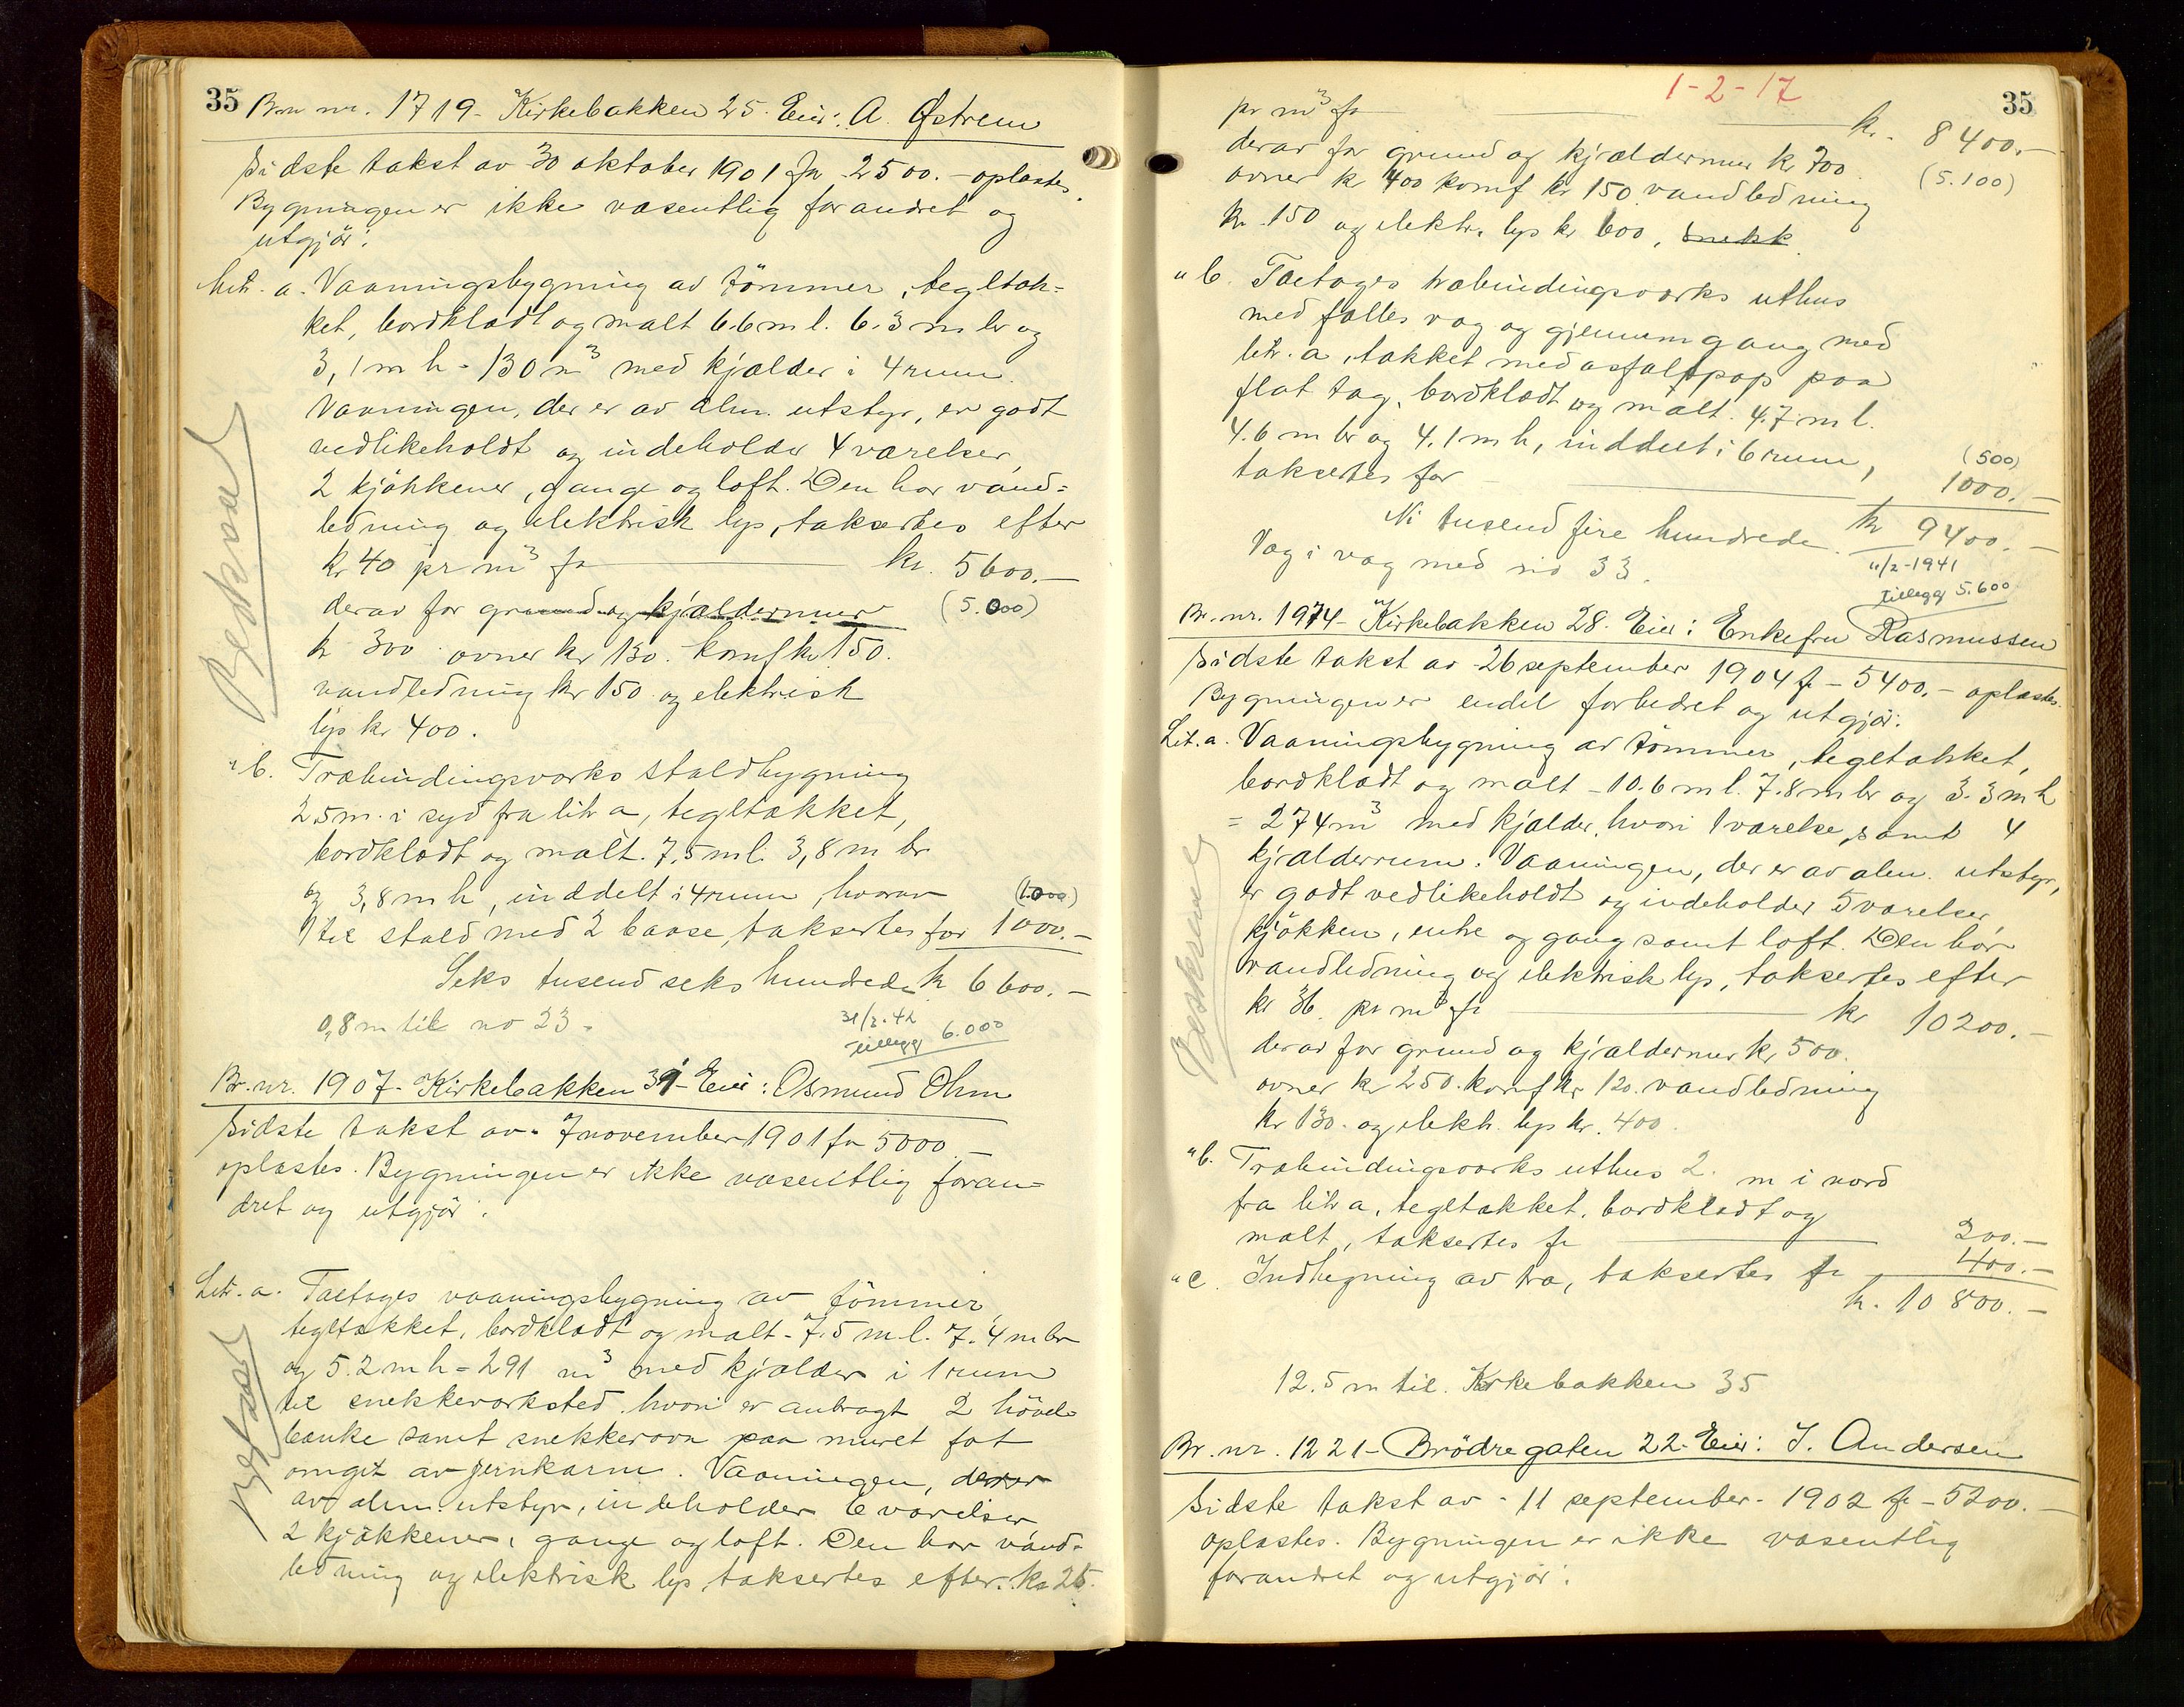 35 Brn nr. 1719 - Kirkebakken 25. Eier: A. Østrem
Sidste takst av 30 oktober 1901 fr 2500.- oplæstes.
Bygningen er ikke væsentlig forandret og
utgjör:
Litr. a. Vaaningsbygning av tömmer, tegltæk-
ket, bordklædt og malt 6.6 m l. 6.3 m br og
3,1 m h = 130 m³ med kjælder i 4 rum.
Vaaningen, der er av alm. utstyr, er godt
vedlikeholdt og indeholder 4 værelser,
2 kjökkener, gange og loft. Den har vand-
ledning og elektrisk lys, taksertes efter
kr 40 pr m³ fr kr. 5600.-
derav for grund og kjældermur (5.000)
kr 300 ovner kr 130. komf kr 150.
vandledning kr 150 og elektrisk
lys kr 400.
" b. Træbindingsværks staldbygning
25 m. i syd fra litr a, tegltækket,
bordklædt og malt. 7,5 m l. 3,8 m br
og 3,8 m h, inddelt i 4 rum, hvorav (1.000)
1 til stald med 2 baase, taksertes for 1000.-
Seks tusend seks hundrede kr 6600.-
0,8 m til no 23.
31/3-42
tillegg 6.000
Br. nr. 1907 - Kirkebakken 31 - Eier: Osmund Ohm
Sidste takst av 7 november 1901 fr 5000.-
oplæstes. Bygningen er ikke væsentlig foran-
dret og utgjör:
Litr. a. Toetages vaaningsbygning av tömmer,
tegltækket, bordklædt og malt - 7.5 m l. 7.4 m br
og 5.2 m h = 291 m³ med kjælder i 1 rum
til snekkerværksted hvori er anbragt 2 hövle
bænke samt snekkerovn paa muret fot
omgit av jernkarm. Vaaningen, der er
av alm. utstyr, indeholder 6 værelser
2 kjøkkener, gange og loft. Den har vand-
ledning og elektrisk lys, taksertes efter kr 25.
Beskaaret
1-2-17
35
pr m³ fr kr. 8400.-
derav for grund og kjældermur kr 700 (5.100)
ovner kr 400 komf kr 150 vandledning
kr 150 og elektr. lys kr 600, snekk
" b. Toetages træbindingsværks uthus
med fælles væg og gjennemgang med
litr. a, tækket med asfaltpap paa
flat tag, bordklædt og malt. 4.7 m l.
4.6 m br og 4.1 m h, inddelt i 6 rum, (500)
taksertes for 1000.-
Ni tusend fire hundrede kr 9400.-
Væg i væg med no 33.
11/2-1941
tillegg 5.600
Br. nr. 1974 - Kirkebakken 28. Eier: Enkefru Rasmussen
Sidste takst av 26 september 1904 fr - 5400.- oplæstes.
Bygningen er endel forbedret og utgjör:
Lit. a. Vaaningsbygning av tömmer, tegltækket,
bordklædt og malt - 10.6 m l. 7.8 m br og 3.3 m h
= 274 m³ med kjælder, hvori 1 værelse, samt 4
kjælderrum. Vaaningen, der er av alm. utstyr,
er godt vedlikeholdt og indeholder 5 værelser,
kjökken, entre og gang samt loft. Den har
vandledning og elektrisk lys, taksertes efter
kr 36. pr m³ fr kr 10200.-
derav for grund og kjældermur kr 500.
ovner kr 250. komf kr 120. vandledning
kr 130. og elektr. lys kr. 400.
" b. Træbindingsværks uthus 2. m i nord
fra litr a, tegltækket, bordklædt og
malt, taksertes fr 200.-
" c. Indhegning av træ, taksertes fr 400.-
kr. 10800.-
12.5 m til Kirkebakken 35
Br. nr. 1221 - Brödregaten 22. Eier: J. Andersen
Sidste takst av - 11 september - 1902 fr - 5200.-
oplæstes. Bygningen er ikke væsentlig
forandret og utgjör: